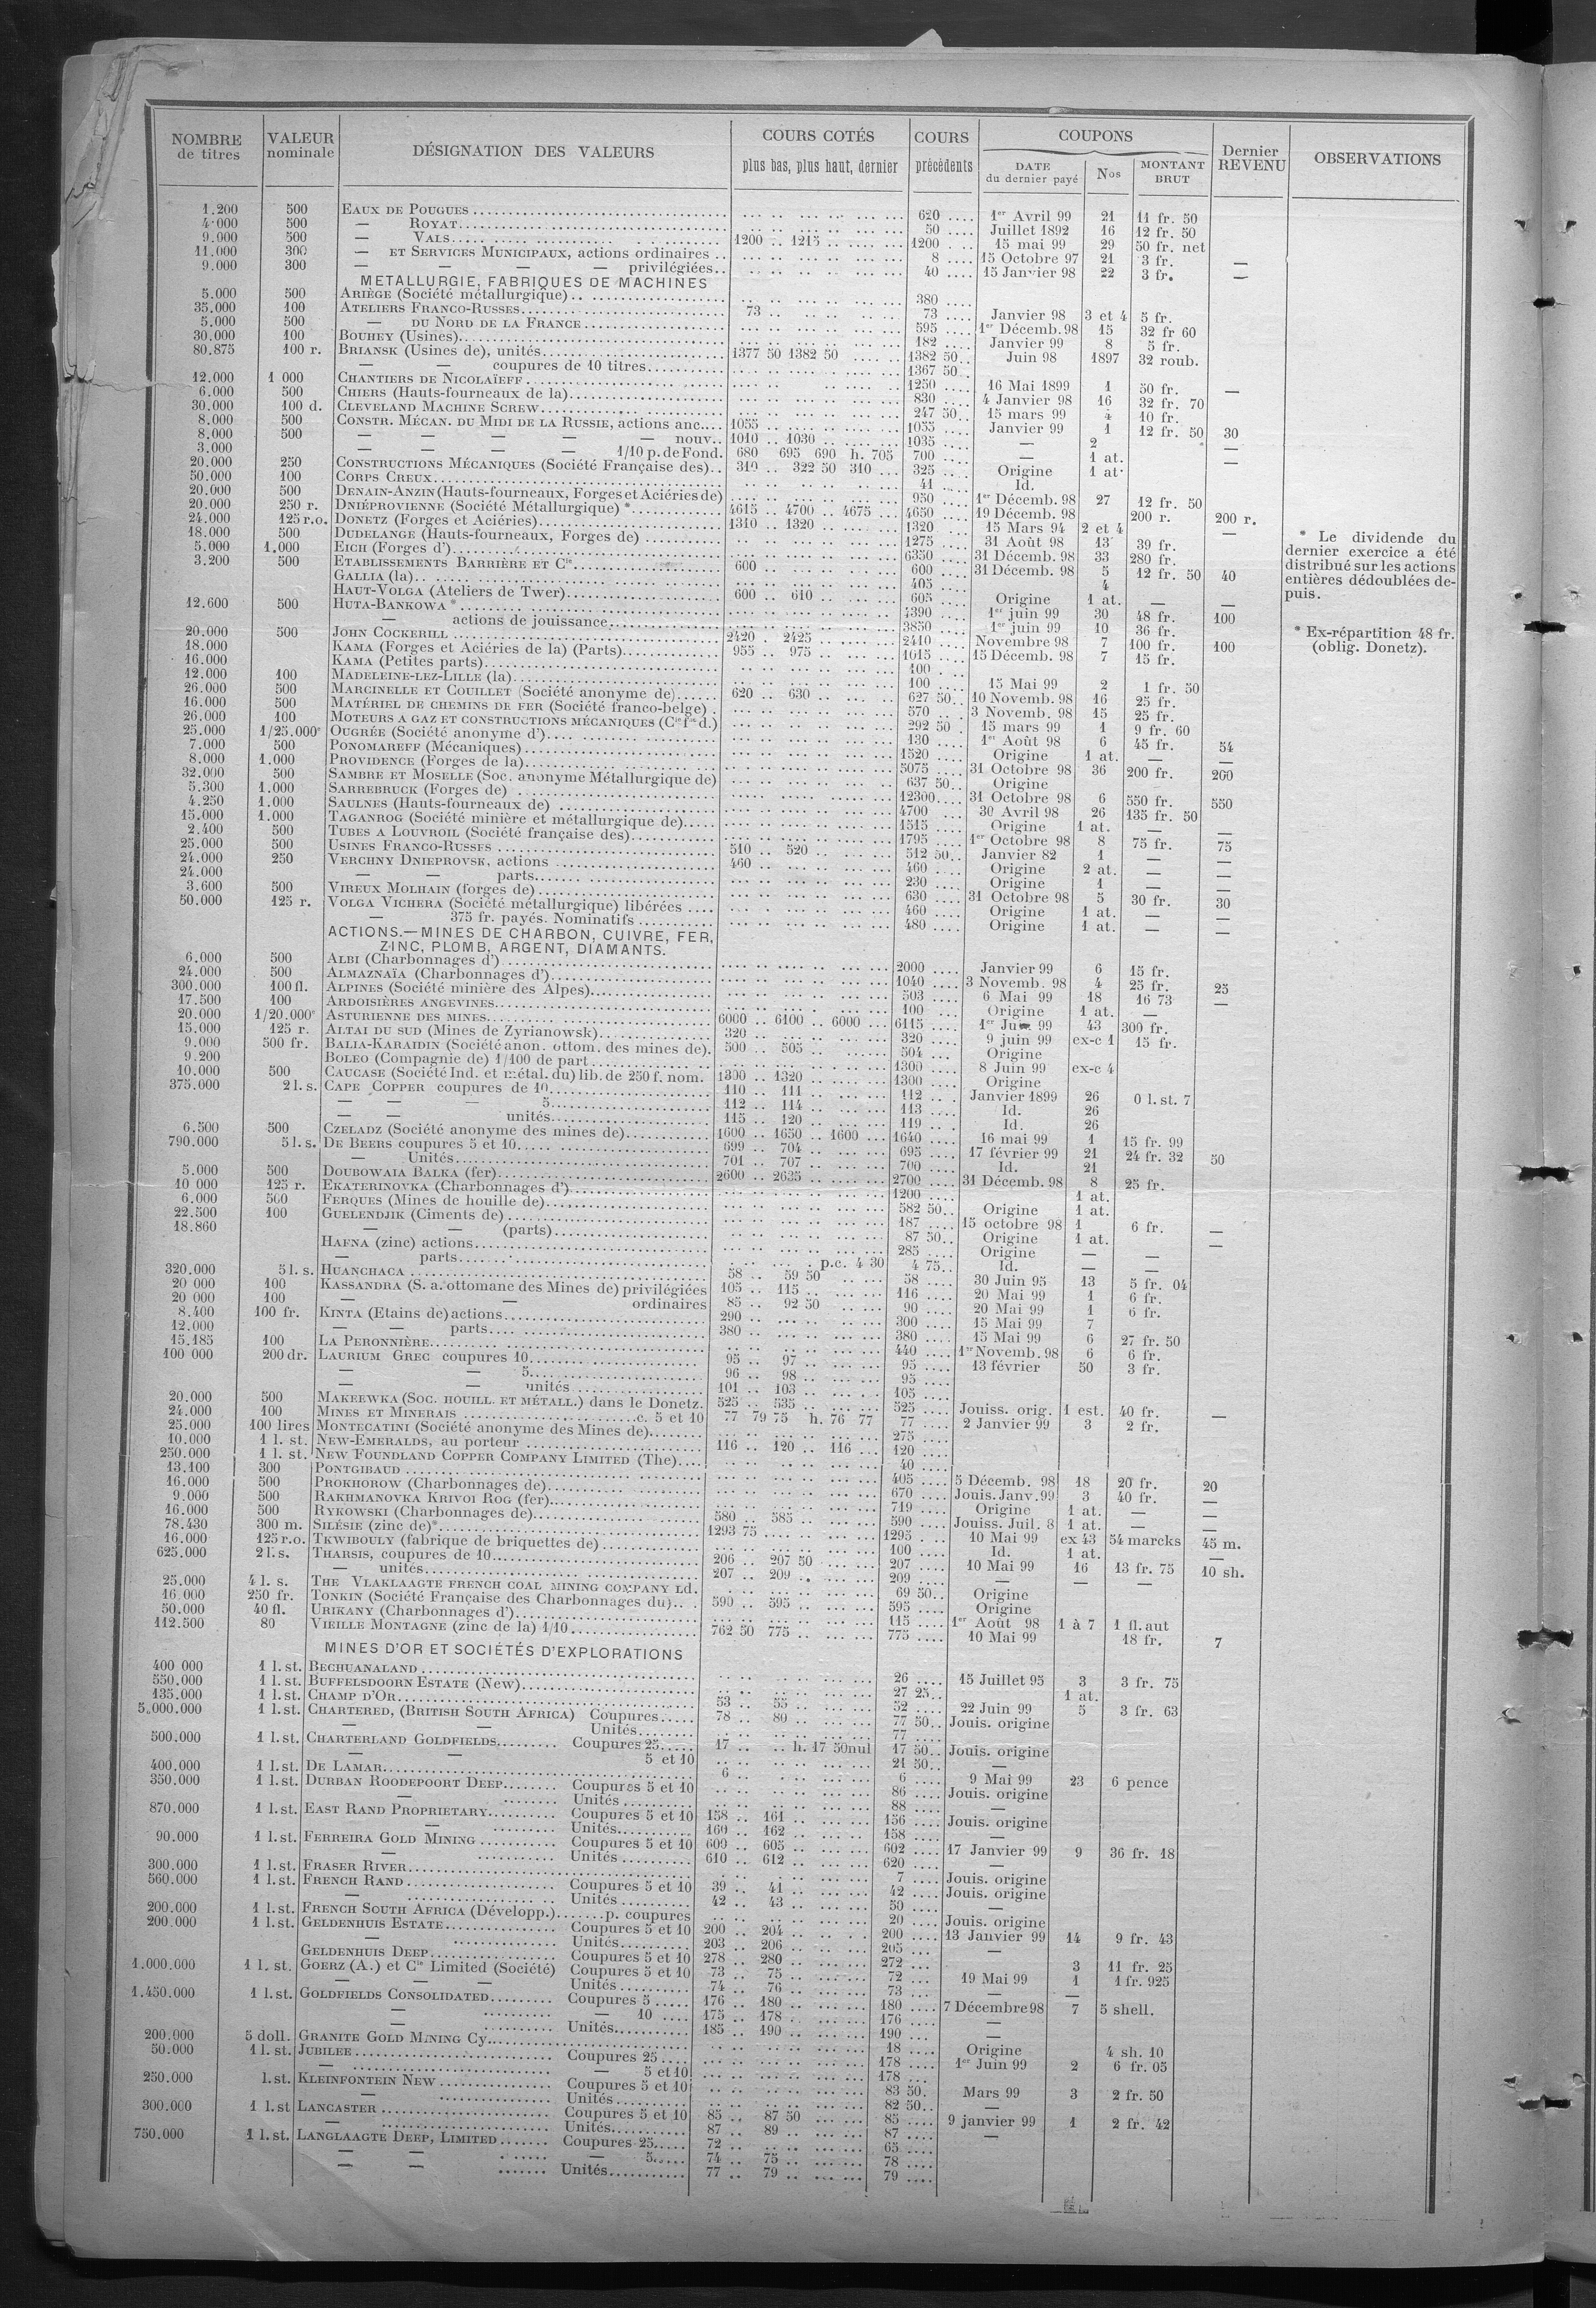 NOMBRE de titres | VALEUR nominale | DÉSIGNATION DES VALEURS | COURS COTÉS plus bas, plus haut, dernier | COURS précédents | COUPONS DATE du dernier payé | Nos | MONTANT BRUT | Dernier REVENU | OBSERVATIONS
1.200 500 EAUX DE POUGUES 620 1er Avril 99 21 11 fr. 50
4.000 500 — ROYAT 50 Juillet 1892 16 12 fr. 50
9.000 500 — VALS 1200 1215 1200 15 mai 99 29 50 fr. net
11.000 300 — ET SERVICES MUNICIPAUX, actions ordinaires 8 15 Octobre 97 21 3 fr. —
9.000 300 — — — — privilégiées 40 15 Janvier 98 22 3 fr. —
METALLURGIE, FABRIQUES DE MACHINES
5.000 500 ARIÈGE (Société métallurgique) 380
35.000 100 ATELIERS FRANCO-RUSSES 73 73 Janvier 98 3 et 4 5 fr.
5.000 500 — DU NORD DE LA FRANCE 595 1er Décemb. 98 15 32 fr 60
30.000 100 BOUHEY (Usines) 182 Janvier 99 8 5 fr.
80.875 100 r. BRIANSK (Usines de), unités 1377 50 1382 50 1382 50 Juin 98 1897 32 roub.
— — coupures de 10 titres 1367 50
12.000 1 000 CHANTIERS DE NICOLAÏEFF 1250 16 Mai 1899 1 50 fr. —
6.000 500 CHIERS (Hauts-fourneaux de la) 830 4 Janvier 98 16 32 fr. 70
30.000 100 d. CLEVELAND MACHINE SCREW 247 50 15 mars 99 4 10 fr.
8.000 500 CONSTR. MÉCAN. DU MIDI DE LA RUSSIE, actions anc. 1055 1055 Janvier 99 1 12 fr. 50 30
8.000 500 — — — — — nouv. 1010 1030 1035 — 2 —
3.000 — — — — 1/10 p. de Fond. 680 695 690 h. 705 700 — 1 at. —
20.000 250 CONSTRUCTIONS MÉCANIQUES (Société Française des) 310 322 50 310 325 Origine 1 at.
50.000 100 CORPS CREUX 41 Id.
20.000 500 DENAIN-ANZIN (Hauts-fourneaux, Forges et Aciéries de) 950 1er Décemb. 98 27 12 fr. 50
20.000 250 r. DNIÉPROVIENNE (Société Métallurgique) * 4615 4700 4675 4650 19 Décemb. 98 200 r. 200 r.
24.000 125 r.o. DONETZ (Forges et Aciéries) 1310 1320 1320 15 Mars 94 2 et 4 —
18.000 500 DUDELANGE (Hauts-fourneaux, Forges de) 1275 31 Août 98 13 39 fr.
5.000 1.000 EICH (Forges d') 6350 31 Décemb. 98 33 280 fr.
3.200 500 ETABLISSEMENTS BARRIÈRE ET Cie 600 600 31 Décemb. 98 5 12 fr. 50 40
GALLIA (la) 405 4
HAUT-VOLGA (Ateliers de Twer) 600 610 605 Origine 1 at. — —
12.600 500 HUTA-BANKOWA * 4390 1er juin 99 30 48 fr. 100
— actions de jouissance 3850 1er juin 99 10 36 fr.
20.000 500 JOHN COCKERILL 2420 2425 2410 Novembre 98 7 100 fr. 100
18.000 KAMA (Forges et Aciéries de la) (Parts) 955 975 1015 15 Décemb. 98 7 15 fr.
16.000 KAMA (Petites parts) 100
12.000 100 MADELEINE-LEZ-LILLE (la) 100 15 Mai 99 2 1 fr. 50
26.000 500 MARCINELLE ET COUILLET (Société anonyme de) 620 630 627 50 10 Novemb. 98 16 25 fr.
16.000 500 MATÉRIEL DE CHEMINS DE FER (Société franco-belge) 570 3 Novemb. 98 15 25 fr.
26.000 100 MOTEURS A GAZ ET CONSTRUCTIONS MÉCANIQUES (Cie fse d.) 292 50 15 mars 99 1 9 fr. 60
25.000 1/25.000e OUGRÉE (Société anonyme d') 130 1er Août 98 6 45 fr. 54
7.000 500 PONOMAREFF (Mécaniques) 1520 Origine 1 at. — —
8.000 1.000 PROVIDENCE (Forges de la) 5075 31 Octobre 98 36 200 fr. 200
32.000 500 SAMBRE ET MOSELLE (Soc. anonyme Métallurgique de) 637 50 Origine
5.300 1.000 SARREBRUCK (Forges de) 12300 31 Octobre 98 6 550 fr. 550
4.250 1.000 SAULNES (Hauts-fourneaux de) 4700 30 Avril 98 26 135 fr. 50
15.000 1.000 TAGANROG (Société minière et métallurgique de) 1515 Origine 1 at. — —
2.400 500 TUBES A LOUVROIL (Société française des) 1795 1er Octobre 98 8 75 fr. 75
25.000 500 USINES FRANCO-RUSSES 510 520 512 50 Janvier 82 1 — —
24.000 250 VERCHNY DNIEPROVSK, actions 460 460 Origine 2 at. — —
24.000 — — parts 230 Origine 1 — —
3.600 500 VIREUX MOLHAIN (forges de) 630 31 Octobre 98 5 30 fr. 30
50.000 125 r. VOLGA VICHERA (Société métallurgique) libérées 460 Origine 1 at. — —
— 375 fr. payés. Nominatifs 480 Origine 1 at. — —
* Le dividende du
dernier exercice a été
distribué sur les actions
entières dédoublées de-
puis.
* Ex-répartition 48 fr.
(oblig. Donetz).
ACTIONS.—MINES DE CHARBON, CUIVRE, FER,
ZINC, PLOMB, ARGENT, DIAMANTS.
6.000 500 ALBI (Charbonnages d') 2000 Janvier 99 6 15 fr.
24.000 500 ALMAZNAÏA (Charbonnages d') 1040 3 Novemb. 98 4 25 fr. 25
300.000 100 fl. ALPINES (Société minière des Alpes) 503 6 Mai 99 18 16 73 —
17.500 100 ARDOISIÈRES ANGEVINES 100 Origine 1 at. —
20.000 1/20.000e ASTURIENNE DES MINES 6000 6100 6000 6115 1er Juin 99 43 300 fr.
15.000 125 r. ALTAI DU SUD (Mines de Zyrianowsk) 320 320 9 juin 99 ex-c 1 15 fr.
9.000 500 fr. BALIA-KARAIDIN (Société anon. ottom. des mines de) 500 505 504 Origine
9.200 BOLEO (Compagnie de) 1/100 de part 1300 8 Juin 99 ex-c 4
10.000 500 CAUCASE (Société Ind. et métal. du) lib. de 250 f. nom. 1300 1320 1300 Origine
375.000 2 l. s. CAPE COPPER coupures de 10 110 111 112 Janvier 1899 26 0 l. st. 7
— — — 5 112 114 113 Id. 26
— — unités 115 120 119 Id. 26
6.500 500 CZELADZ (Société anonyme des mines de) 1600 1650 1600 1640 16 mai 99 1 15 fr. 99
790.000 5 l. s. DE BEERS coupures 5 et 10 699 704 695 17 février 99 21 24 fr. 32 50
— Unités 701 707 700 Id. 21
5.000 500 DOUBOWAIA BALKA (fer) 2600 2635 2700 31 Décemb. 98 8 25 fr.
10 000 125 r. EKATERINOVKA (Charbonnages d') 1200 1 at.
6.000 500 FERQUES (Mines de houille de) 582 50 Origine 1 at.
22.500 100 GUELENDJIK (Ciments de) 187 15 octobre 98 1 6 fr. —
18.860 — — (parts) 87 50 Origine 1 at. —
HAFNA (zinc) actions 285 Origine — —
— parts p.c. 4 30 4 75 Id. — —
320.000 5 l. s. HUANCHACA 58 59 50 58 30 Juin 95 13 5 fr. 04
20 000 100 KASSANDRA (S. a. ottomane des Mines de) privilégiées 105 115 116 20 Mai 99 1 6 fr.
20 000 100 — — ordinaires 85 92 50 90 20 Mai 99 1 6 fr.
8.400 100 fr. KINTA (Etains de) actions 290 300 15 Mai 99 7
12.000 — — parts 380 380 15 Mai 99 6 27 fr. 50
15.185 100 LA PERONNIÈRE 440 1er Novemb. 98 6 6 fr.
100 000 200 dr. LAURIUM GREC coupures 10 95 97 95 13 février 50 3 fr.
— — 5 96 98 95
— — unités 101 103 105
20.000 500 MAKEEWKA (SOC. HOUILL. ET MÉTALL.) dans le Donetz. 525 535 525 Jouiss. orig. 1 est. 40 fr. —
24.000 100 MINES ET MINERAIS c. 5 et 10 77 79 75 h. 76 77 77 2 Janvier 99 3 2 fr.
25.000 100 lires MONTECATINI (Société anonyme des Mines de) 275
10.000 1 l. st. NEW-EMERALDS, au porteur 116 120 116 120
250.000 1 l. st. NEW FOUNDLAND COPPER COMPANY LIMITED (The) 40
13.100 300 PONTGIBAUD 405 5 Décemb. 98 18 20 fr. 20
16.000 500 PROKHOROW (Charbonnages de) 670 Jouis. Janv. 99 3 40 fr. —
9.000 500 RAKHMANOVKA KRIVOI ROG (fer) 719 Origine 1 at. — —
16.000 500 RYKOWSKI (Charbonnages de) 580 585 590 Jouiss. Juil. 8 1 at. — —
78.430 300 m. SILÉSIE (zinc de)* 1293 75 1295 10 Mai 99 ex 43 54 marcks 45 m.
16.000 125 r.o. TKWIBOULY (fabrique de briquettes de) 100 Id. 1 at. —
625.000 2 l. s. THARSIS, coupures de 10 206 207 50 207 10 Mai 99 16 13 fr. 75 10 sh.
— unités 207 209 209 — — —
25.000 4 l. s. THE VLAKLAAGTE FRENCH COAL MINING COMPANY LD. 69 50 Origine
16.000 250 fr. TONKIN (Société Française des Charbonnages du) 590 595 595 Origine
50.000 40 fl. URIKANY (Charbonnages d') 115 1er Août 98 1 à 7 1 fl. aut
112.500 80 VIEILLE MONTAGNE (zinc de la) 1/10 762 50 775 775 10 Mai 99 18 fr. 7
MINES D'OR ET SOCIÉTÉS D'EXPLORATIONS
400 000 1 l. st. BECHUANALAND 26 15 Juillet 95 3 3 fr. 75
550.000 1 l. st. BUFFELSDOORN ESTATE (New) 27 25 1 at.
135.000 1 l. st. CHAMP D'OR 53 55 52 22 Juin 99 5 3 fr. 63
5.000.000 1 l. st. CHARTERED, (BRITISH SOUTH AFRICA) Coupures 78 80 77 50 Jouis. origine
— — Unités 77
500.000 1 l. st. CHARTERLAND GOLDFIELDS Coupures 25 17 h. 17 50 nul 17 50 Jouis. origine
— — 5 et 10 21 50 —
400.000 1 l. st. DE LAMAR 6 6 9 Mai 99 23 6 pence
350.000 1 l. st. DURBAN ROODEPOORT DEEP Coupures 5 et 10 86 Jouis. origine
— Unités 88 —
870.000 1 l. st. EAST RAND PROPRIETARY Coupures 5 et 10 158 161 156 Jouis. origine
— Unités 160 162 158 —
90.000 1 l. st. FERREIRA GOLD MINING Coupures 5 et 10 600 605 602 17 Janvier 99 9 36 fr. 18
— Unités 610 612 620 —
300.000 1 l. st. FRASER RIVER 7 Jouis. origine
560.000 1 l. st. FRENCH RAND Coupures 5 et 10 39 41 42 Jouis. origine
— Unités 42 43 50 —
200.000 1 l. st. FRENCH SOUTH AFRICA (Développ.) p. coupures 20 Jouis. origine
200.000 1 l. st. GELDENHUIS ESTATE Coupures 5 et 10 200 204 200 13 Janvier 99 14 9 fr. 43
— Unités 203 206 205 —
GELDENHUIS DEEP Coupures 5 et 10 278 280 272 3 11 fr. 25
1.000.000 1 l. st. GOERZ (A.) et Cie Limited (Société) Coupures 5 et 10 73 75 72 19 Mai 99 1 1 fr. 925
— — — Unités 74 76 73 — —
1.450.000 1 l. st. GOLDFIELDS CONSOLIDATED Coupures 5 176 180 180 7 Décembre 98 7 5 shell.
— — 10 175 178 176 —
— Unités 185 190 190 —
200.000 5 doll. GRANITE GOLD MINING Cy 18 Origine 4 sh. 10
50.000 1 l. st. JUBILEE Coupures 25 178 1er Juin 99 2 6 fr. 05
— — 5 et 10 178
250.000 l. st. KLEINFONTEIN NEW Coupures 5 et 10 83 50 Mars 99 3 2 fr. 50
— Unités 82 50 —
300.000 1 l. st LANCASTER Coupures 5 et 10 85 87 50 85 9 janvier 99 1 2 fr. 42
— Unités 87 89 87 —
750.000 1 l. st. LANGLAAGTE DEEP, LIMITED Coupures 25 72 65
— — — 5 74 75 78
— — Unités 77 79 79